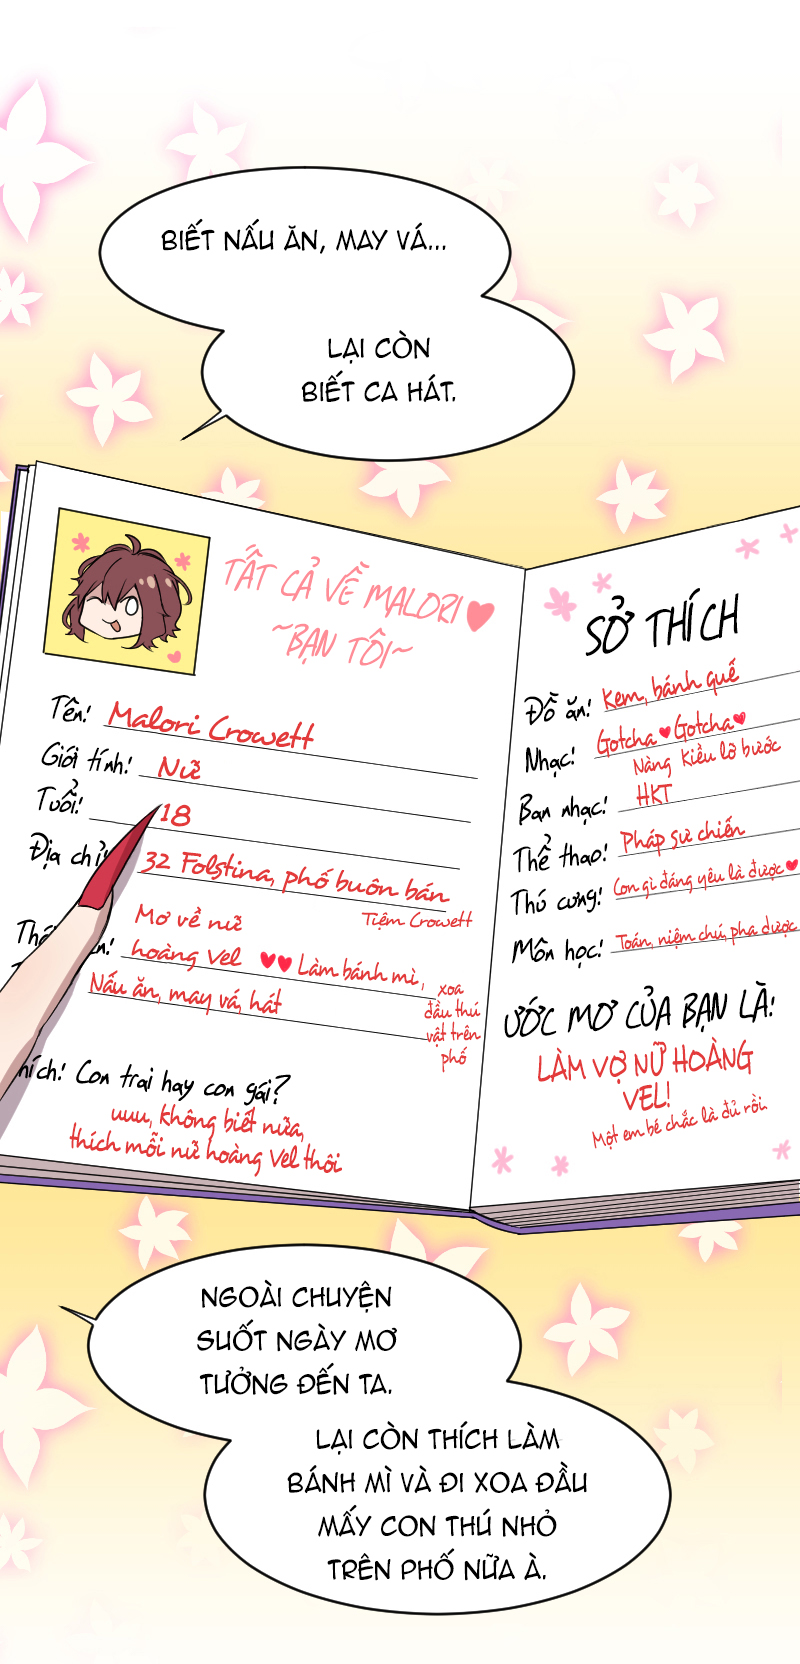 BIẾT NẤU ĂN, MAY VÁ...
LẠI CÒN
BIẾT CA HÁT.
TẤT CẢ VỀ MALORI
~BẠN TÔI~
Tên! Malori Crowett
Giới tính! Nữ
Tuổi! 18
Địa chỉ! 32 Folstina, phố buôn bán
Tiệm Crowett
Mơ về nữ
hoàng Vel ♥♥ Làm bánh mì,
Nấu ăn, may vá, hát
xoa
đầu thú
vật trên
phố
hích! Con trai hay con gái?
uuu, không biết nữa,
thích mỗi nữ hoàng Vel thôi
SỞ THÍCH
Đồ ăn! Kem, bánh quế
Nhạc! Gotcha ♥ Gotcha ♥
Nàng Kiều lỡ bước
Ban nhạc! HKT
Thể thao! Pháp sư chiến
Thú cưng! Con gì đáng yêu là được ♥
Môn học! Toán, niệm chú, pha dược
ƯỚC MƠ CỦA BẠN LÀ!
LÀM VỢ NỮ HOÀNG
VEL!
Một em bé chắc là đủ rồi.
NGOÀI CHUYỆN
SUỐT NGÀY MƠ
TƯỞNG ĐẾN TA.
LẠI CÒN THÍCH LÀM
BÁNH MÌ VÀ ĐI XOA ĐẦU
MẤY CON THÚ NHỎ
TRÊN PHỐ NỮA À.